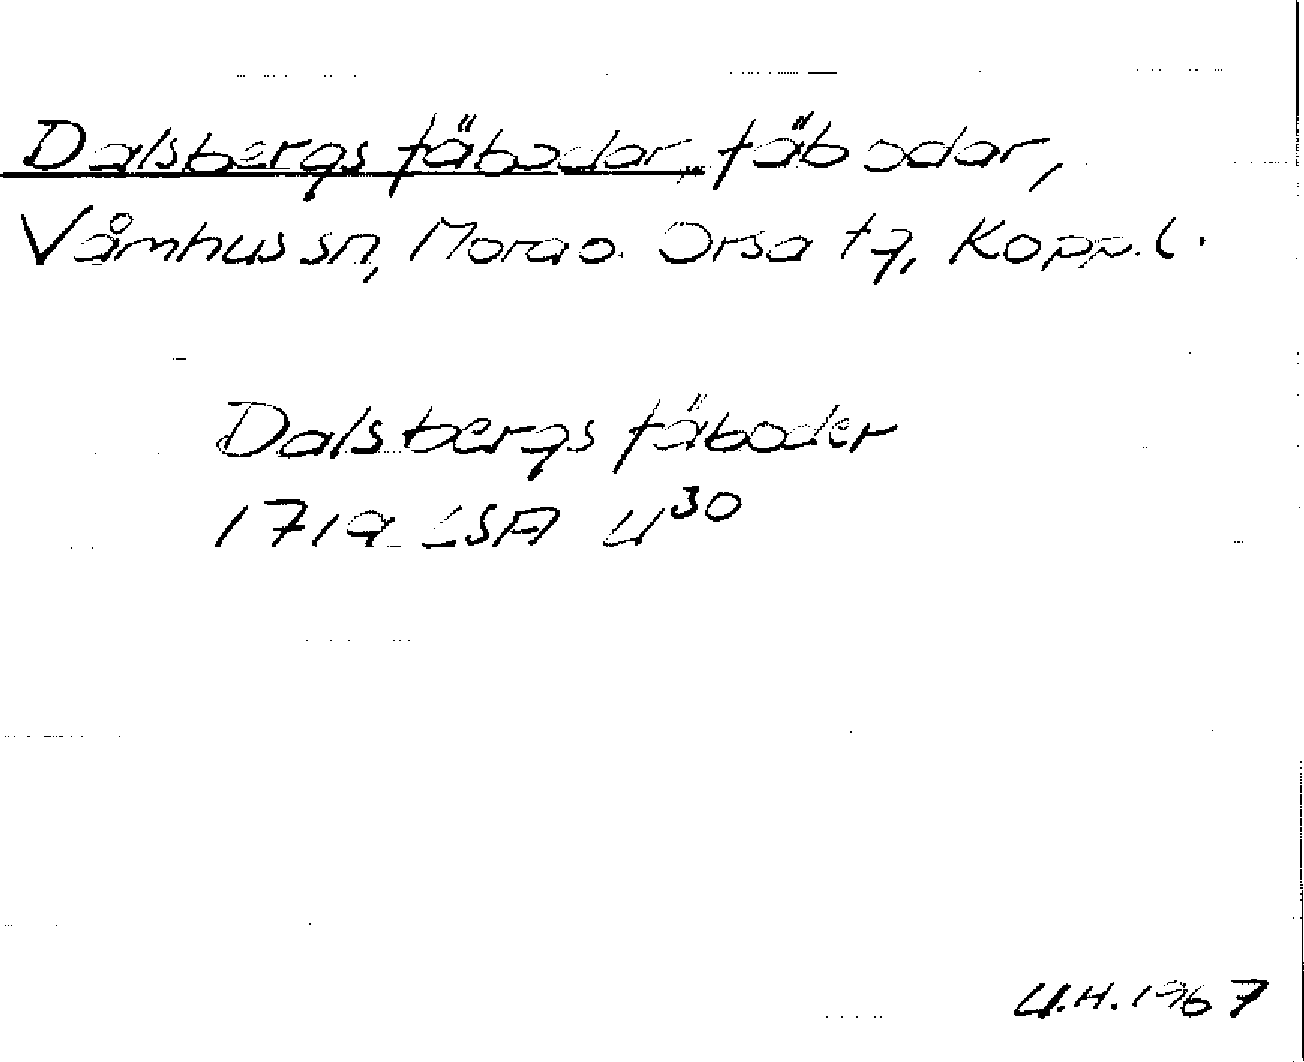 Dalsbergs fäbodar, fäbodar,
Våmhus sn, Mora o. Orsa tg, Kopp. l.
Dalsbergs fäboder
1719 LSA U³⁰
U.H. 1967